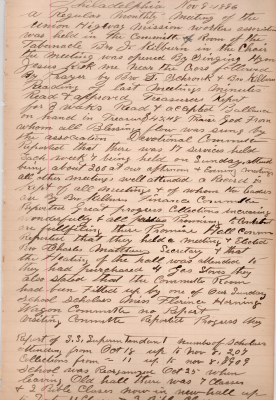 Philadelphia Nov 8 1886
A Regular Monthly Meeting of the
was held in the Committee Room of the
Tabernacle Bro Jo Kilburn in the Chair
the Meeting was opened By Singing Hymn
Jesus keep me near the Cross followed
By Prayer by Bro Schrock & Bro Kilburn
Reading of Last Meetings Minutes
Read & approved Treasurers Report
for 3 weeks Read & accepted Ballance
on hand in Treasury $42.48 Praise God From
whom all Blessings flow was sung by
the association Devotional Committee
Reported that there was 17 services held
Each week 7 being held on Sunday, attend
being about afternoon & Evening meetings
all other meetings well attended a Record is
Kept of all meetings & of whom the leaders
are By Bro Kilburn Finance Committee
Reported Great progress Collections increasing
wonderfully & all
are fullfilling their Promise Hall Comm
reported that they held a meeting & Elected
Bro Secretary that
the Heating of the hall was attended to
they had purchased 4 Gas Stoves they
also stated that the Committee Room
had been fitted up by one of Our Sunday
school scholars Miss Florence Horning
Wagon Committee no Report
Visiting Committee Reported Progress they
Report of S.S. Superintendent number of Scholars
attending from Oct 18 up to Nov 8. 207
Collections from " 11 up to Nov 8
School was Reorganized Oct 25 when
leaving Old hall there was 7 Classes
& 2 Bible Classes now in new hall up